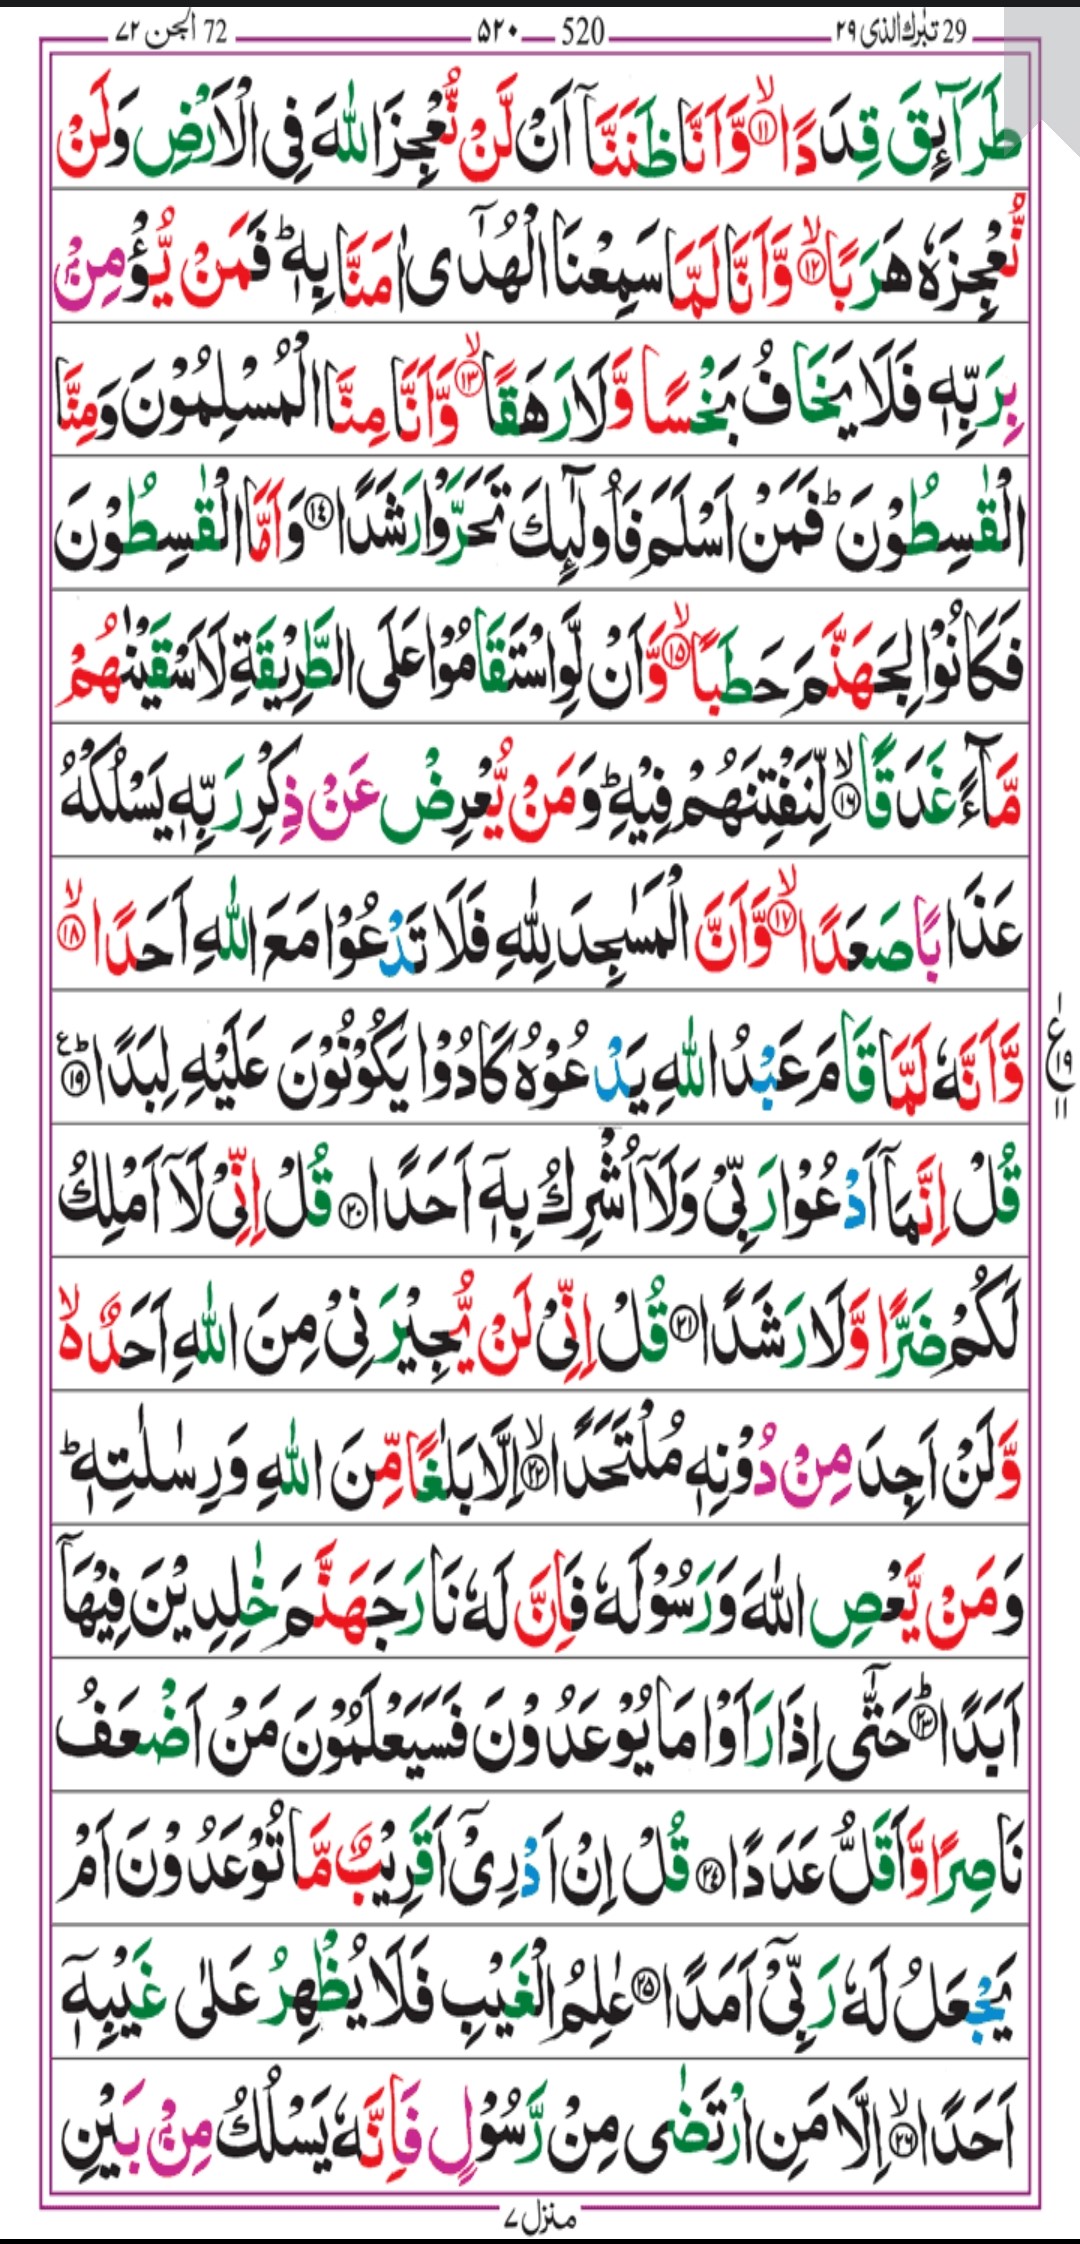 29 تبٰرك الذی ٢٩ 520 ٥٢٠ 72 الجن ٧٢
طَرَآىِٕقَ قِدَدًا ۙ‏﴿۱۱﴾ وَّاَنَّا ظَنَنَّاۤ اَنْ لَّنْ نُّعْجِزَ اللّٰهَ فِى الْاَرْضِ وَلَنْ
نُّعْجِزَهٗ هَرَبًا ۙ‏﴿۱۲﴾ وَّاَنَّا لَمَّا سَمِعْنَا الْهُدٰٓى اٰمَنَّا بِهٖ ؕ فَمَنْ يُّؤْمِنْۢ
بِرَبِّهٖ فَلَا يَخَافُ بَخْسًا وَّلَا رَهَقًا ۙ‏﴿۱۳﴾ وَّاَنَّا مِنَّا الْمُسْلِمُوْنَ وَمِنَّا
الْقٰسِطُوْنَ ؕ فَمَنْ اَسْلَمَ فَاُولٰٓىِٕكَ تَحَرَّوْا رَشَدًا ‏﴿۱۴﴾ وَاَمَّا الْقٰسِطُوْنَ
فَكَانُوْا لِجَهَنَّمَ حَطَبًا ۙ‏﴿۱۵﴾ وَّاَنْ لَّوِ اسْتَقَامُوْا عَلَى الطَّرِيْقَةِ لَاَسْقَيْنٰهُمْ
مَّآءً غَدَقًا ۙ‏﴿۱۶﴾ لِّنَفْتِنَهُمْ فِيْهِ ؕ وَمَنْ يُّعْرِضْ عَنْ ذِكْرِ رَبِّهٖ يَسْلُكْهُ
عَذَابًا صَعَدًا ۙ‏﴿۱۷﴾ وَّاَنَّ الْمَسٰجِدَ لِلّٰهِ فَلَا تَدْعُوْا مَعَ اللّٰهِ اَحَدًا ۙ‏﴿۱۸﴾
وَّاَنَّهٗ لَمَّا قَامَ عَبْدُ اللّٰهِ يَدْعُوْهُ كَادُوْا يَكُوْنُوْنَ عَلَيْهِ لِبَدًا ؕ ‏﴿۱۹﴾ ع
ع ١٩ ١١
قُلْ اِنَّمَاۤ اَدْعُوْا رَبِّىْ وَلَاۤ اُشْرِكُ بِهٖۤ اَحَدًا ‏﴿۲۰﴾ قُلْ اِنِّىْ لَاۤ اَمْلِكُ
لَكُمْ ضَرًّا وَّلَا رَشَدًا ‏﴿۲۱﴾ قُلْ اِنِّىْ لَنْ يُّجِيْرَنِىْ مِنَ اللّٰهِ اَحَدٌ ۙ۬
وَّلَنْ اَجِدَ مِنْ دُوْنِهٖ مُلْتَحَدًا ۙ‏﴿۲۲﴾ اِلَّا بَلٰغًا مِّنَ اللّٰهِ وَرِسٰلٰتِهٖ ؕ
وَمَنْ يَّعْصِ اللّٰهَ وَرَسُوْلَهٗ فَاِنَّ لَهٗ نَارَ جَهَنَّمَ خٰلِدِيْنَ فِيْهَاۤ
اَبَدًا ؕ‏﴿۲۳﴾ حَتّٰٓى اِذَا رَاَوْا مَا يُوْعَدُوْنَ فَسَيَعْلَمُوْنَ مَنْ اَضْعَفُ
نَاصِرًا وَّاَقَلُّ عَدَدًا ‏﴿۲۴﴾ قُلْ اِنْ اَدْرِىْۤ اَقَرِيْبٌ مَّا تُوْعَدُوْنَ اَمْ
يَجْعَلُ لَهٗ رَبِّىْۤ اَمَدًا ‏﴿۲۵﴾ عٰلِمُ الْغَيْبِ فَلَا يُظْهِرُ عَلٰى غَيْبِهٖۤ
اَحَدًا ۙ‏﴿۲۶﴾ اِلَّا مَنِ ارْتَضٰى مِنْ رَّسُوْلٍ فَاِنَّهٗ يَسْلُكُ مِنْۢ بَيْنِ
منزل ٧